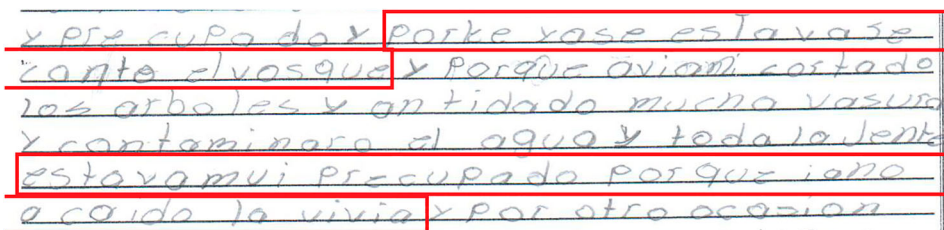 y pre cupa do y porke yase estavase
canto elvosque y porque aviam costado
los arboles y an tidado mucha vasura
y contaminaro el agua y toda la Jente
estavamui precupado porque iano
a caido la vivia y por otro ocasion